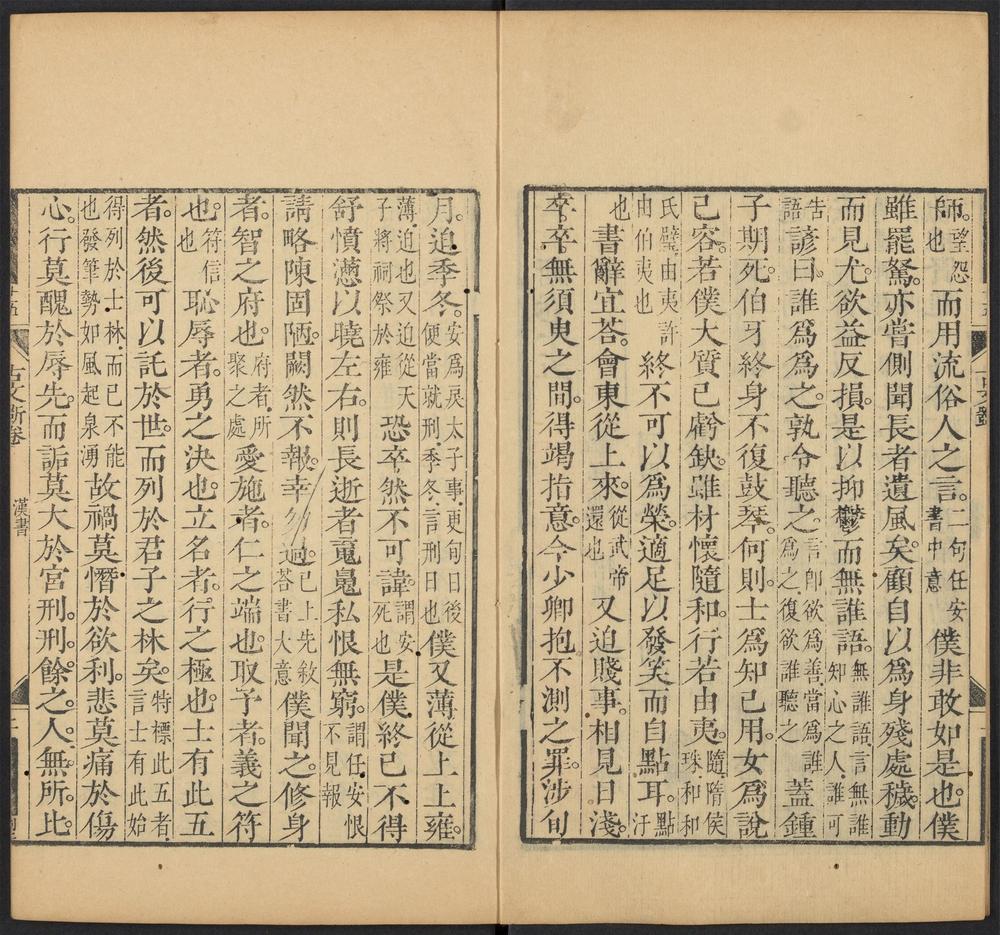 師。望怨也而用流俗人之言。二句任安書中意僕非敢如是也。僕
雖罷駑。亦嘗側聞長者遺風矣。顧自以爲身殘處穢。動
而見尤。欲益反損。是以抑鬱而無誰語。無誰語言無誰知心之人誰可
告語諺曰。誰爲爲之。孰令聽之。言卽欲爲善當爲誰爲之復欲誰聽之蓋鍾
子期死。伯牙終身不復鼓琴。何則。士爲知己用。女爲說
己容。若僕大質已虧缺。雖材懷隨和。行若由夷。隨隋侯珠和和
氏璧由夷許由伯夷也終不可以爲榮。適足以發笑而自點耳。點汙
也書辭宜荅。會東從上來。從武帝還也又迫賤事。相見日淺。
卒卒無須臾之間。得竭指意。今少卿抱不測之罪。涉旬
月。迫季冬。安爲戾太子事更旬日後便當就刑季冬言刑日也僕又薄從上上雍。
薄迫也又迫從天子將祠祭於雍恐卒然不可諱。謂安死也是僕終已不得
舒憤懣以曉左右。則長逝者魂魄私恨無窮。謂任安恨不見報
請略陳固陋。闕然不報。幸勿過。已上先敘荅書大意僕聞之。修身
者。智之府也。府者所聚之處愛施者。仁之端也。取予者。義之符
也。符信也恥辱者。勇之決也。立名者。行之極也。士有此五
者。然後可以託於世。而列於君子之林矣。特標此五者言士有此始
得列於士林而已不能也發筆勢如風起泉湧故禍莫憯於欲利。悲莫痛於傷
心。行莫醜於辱先。而詬莫大於宮刑。刑餘之人。無所比
漢書